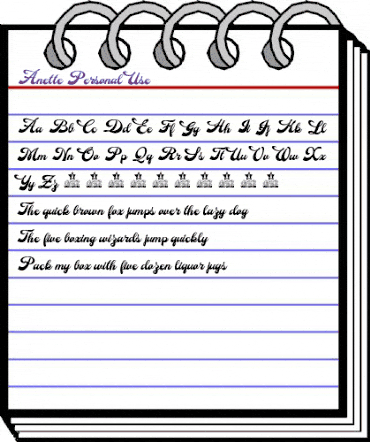 Anette Personal Use
Aa Bb Cc Dd Ee Ff Gg Hh Ii Jj Kk Ll
Mm Nn Oo Pp Qq Rr Ss Tt Uu Vv Ww Xx
Yy Zz
The quick brown fox jumps over the lazy dog
The five boxing wizards jump quickly
Pack my box with five dozen liquor jugs